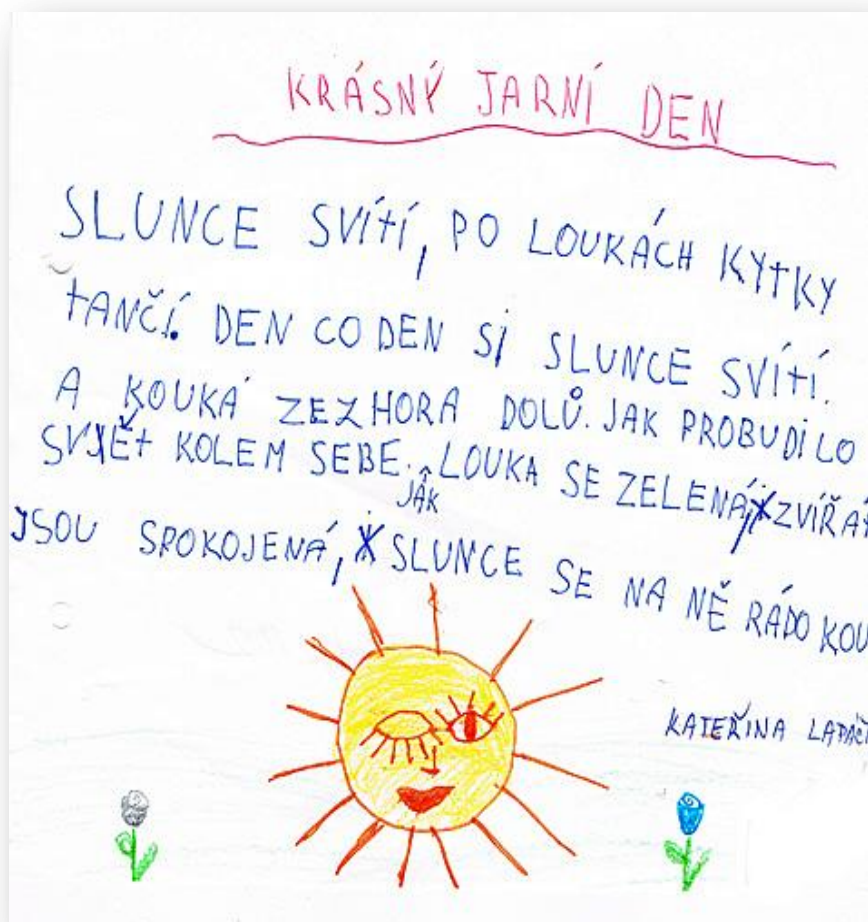 KRÁSNÝ JARNÍ DEN
SLUNCE SVÍTÍ, PO LOUKÁCH KYTKY
TANČÍ. DEN CO DEN SI SLUNCE SVÍTÍ.
A KOUKÁ ZEZHORA DOLŮ. JAK PROBUDILO
SVĚT KOLEM SEBE. JAK LOUKA SE ZELENÁ, ZVÍŘA
JSOU SPOKOJENÁ, SLUNCE SE NA NĚ RÁDO KOU
KATEŘINA